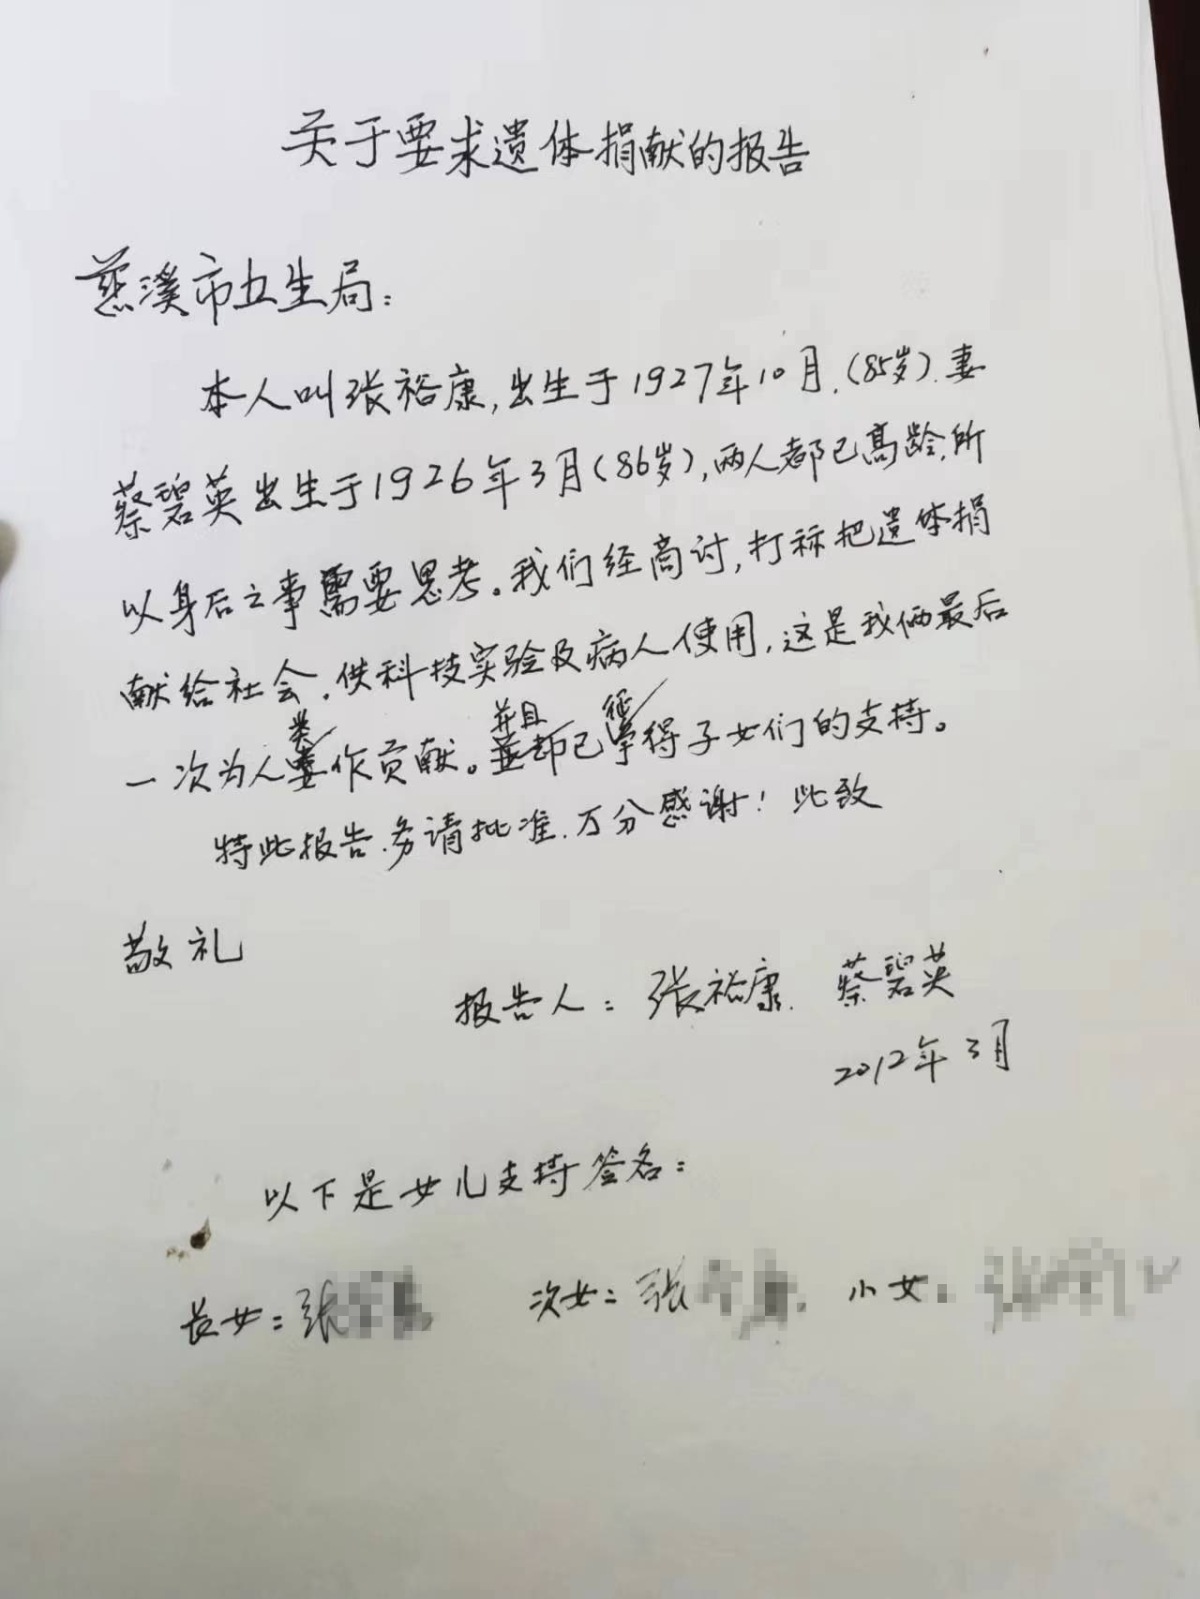 关于要求遗体捐献的报告
慈溪市卫生局：
本人叫张裕康，出生于1927年10月，(85岁)．妻
蔡碧英出生于1926年3月(86岁)，两人都已高龄，所
以身后之事需要思考。我们经商讨，打称把遗体捐
献给社会，供科技实验及病人使用，这是我俩最后
一次为人类作贡献。并且已经得子女们的支持。
特此报告，务请批准，万分感谢！此致
敬礼
报告人：张裕康．蔡碧英
2012年3月
以下是女儿支持签名：
长女：张 次女：张 小女：张